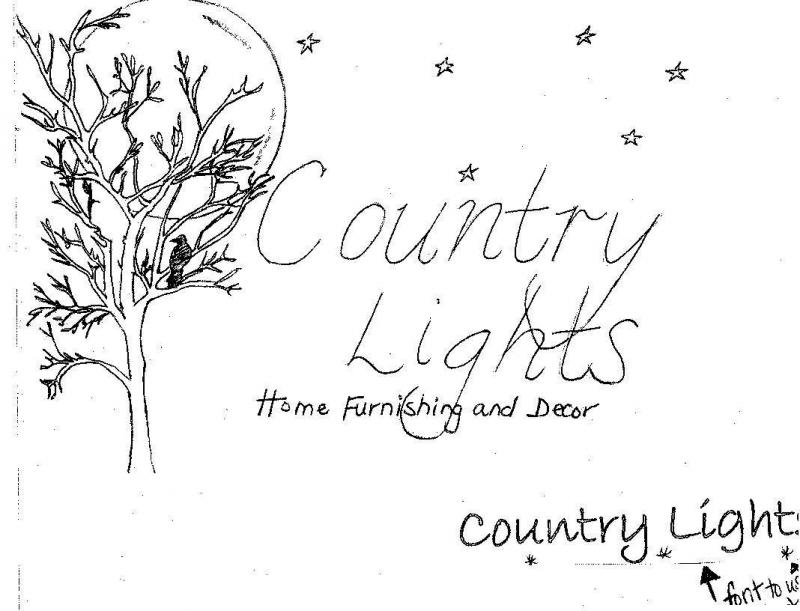 Country
Lights
Home Furnishing and Decor
Country Light
font to us